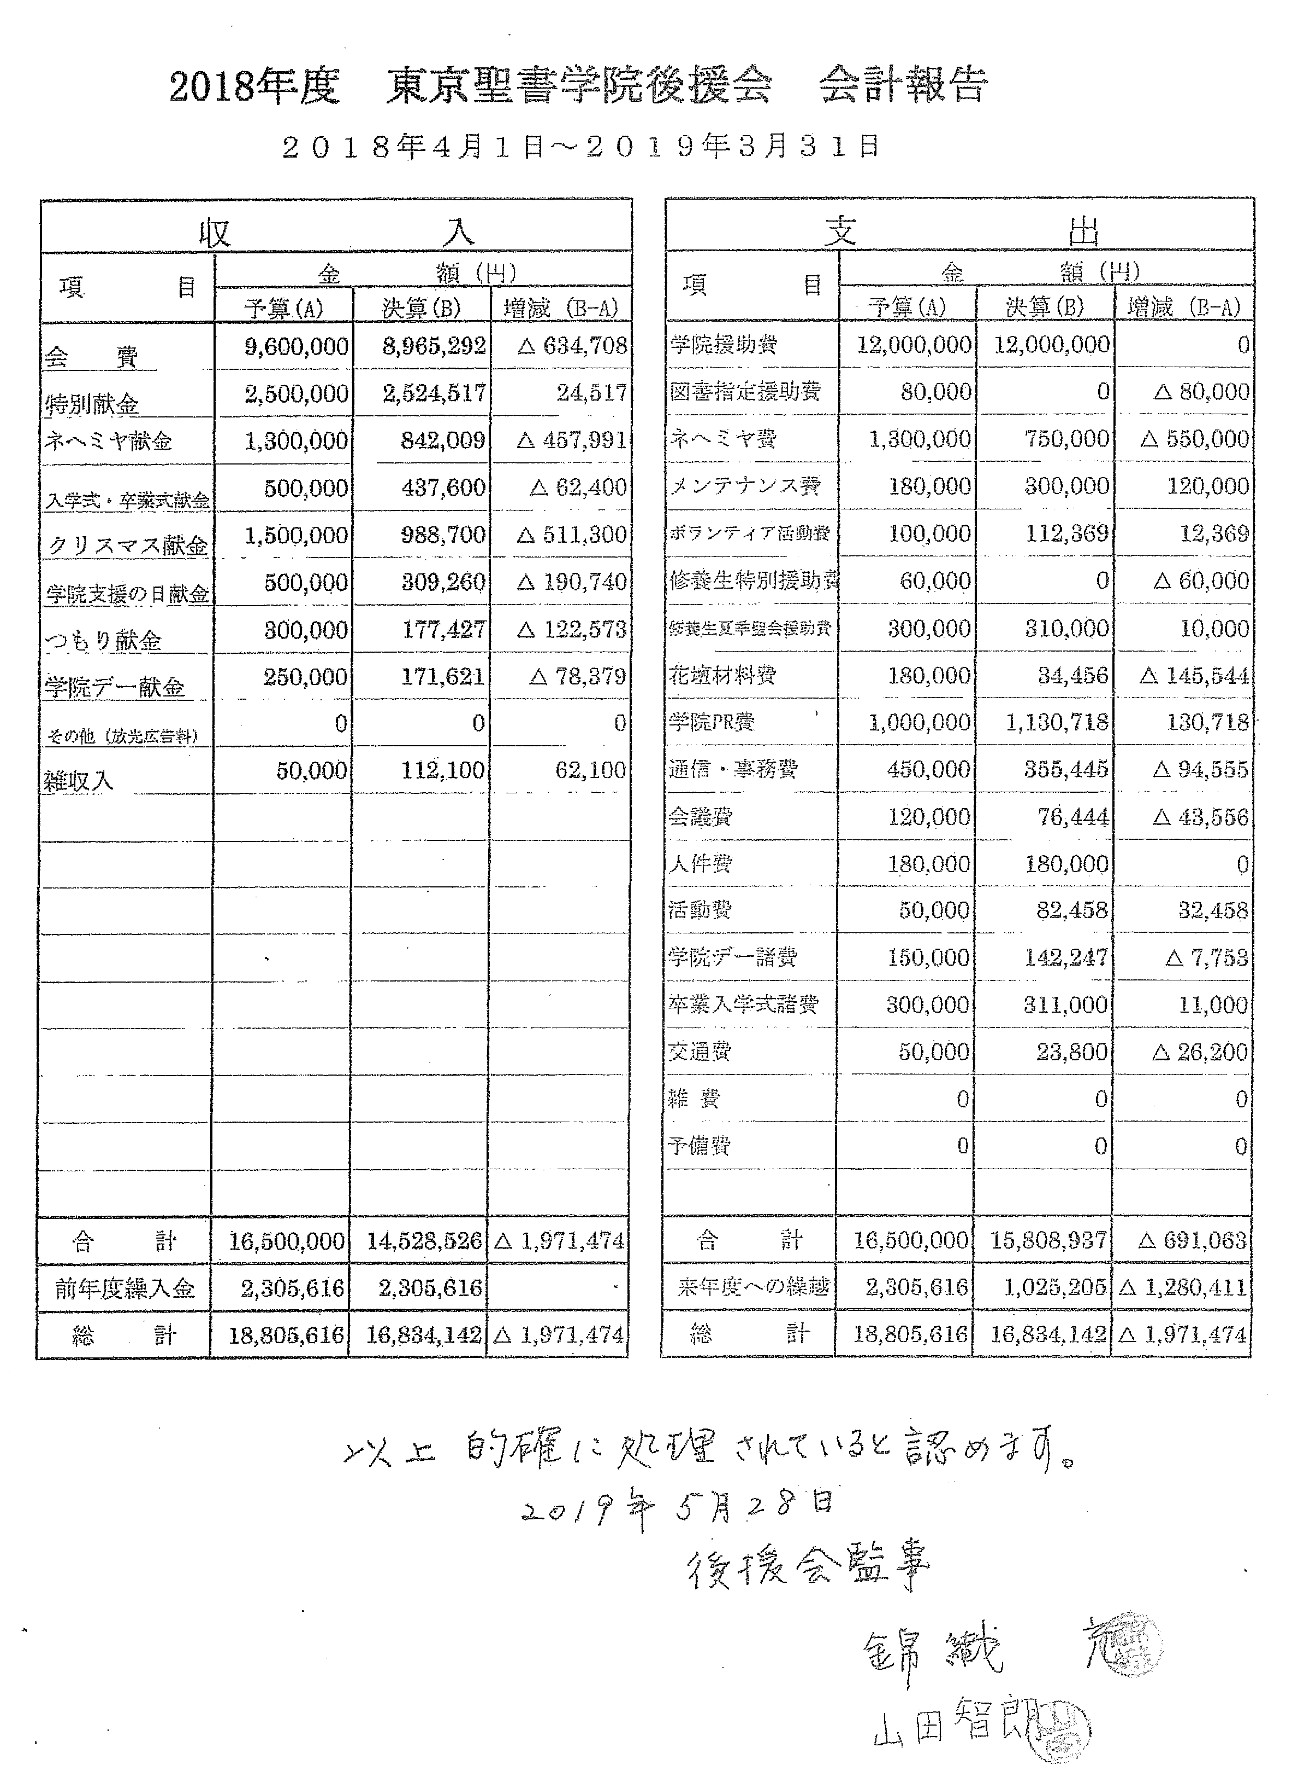 2018年度　東京聖書学院後援会　会計報告
２０１８年４月１日～２０１９年３月３１日
収　入
項　目　金　額（円）
予算(A)　決算(B)　増減（B-A）
会　費　9,600,000　8,965,292　△ 634,708
特別献金　2,500,000　2,524,517　24,517
ネヘミヤ献金　1,300,000　842,009　△ 457,991
入学式・卒業式献金　500,000　437,600　△ 62,400
クリスマス献金　1,500,000　988,700　△ 511,300
学院支援の日献金　500,000　309,260　△ 190,740
つもり献金　300,000　177,427　△ 122,573
学院デー献金　250,000　171,621　△ 78,379
その他（放光広告料）　0　0　0
雑収入　50,000　112,100　62,100
合　計　16,500,000　14,528,526　△ 1,971,474
前年度繰入金　2,305,616　2,305,616　-
総　計　18,805,616　16,834,142　△ 1,971,474
支　出
項　目　金　額（円）
予算(A)　決算(B)　増減（B-A）
学院援助費　12,000,000　12,000,000　0
図書指定援助費　80,000　0　△ 80,000
ネヘミヤ費　1,300,000　750,000　△ 550,000
メンテナンス費　180,000　300,000　120,000
ボランティア活動費　100,000　112,369　12,369
修養生特別援助費　60,000　0　△ 60,000
修養生夏季聖会援助費　300,000　310,000　10,000
花壇材料費　180,000　34,456　△ 145,544
学院PR費　1,000,000　1,130,718　130,718
通信・事務費　450,000　355,445　△ 94,555
会議費　120,000　76,444　△ 43,556
人件費　180,000　180,000　0
活動費　50,000　82,458　32,458
学院デー諸費　150,000　142,247　△ 7,753
卒業入学式諸費　300,000　311,000　11,000
交通費　50,000　23,800　△ 26,200
雑 費　0　0　0
予備費　0　0　0
合　計　16,500,000　15,808,937　△ 691,063
来年度への繰越　2,305,616　1,025,205　△ 1,280,411
総　計　18,805,616　16,834,142　△ 1,971,474
以上 的確に処理されていると認めます。
2019年 5月28日
後援会監事
錦織　充
山田智朗